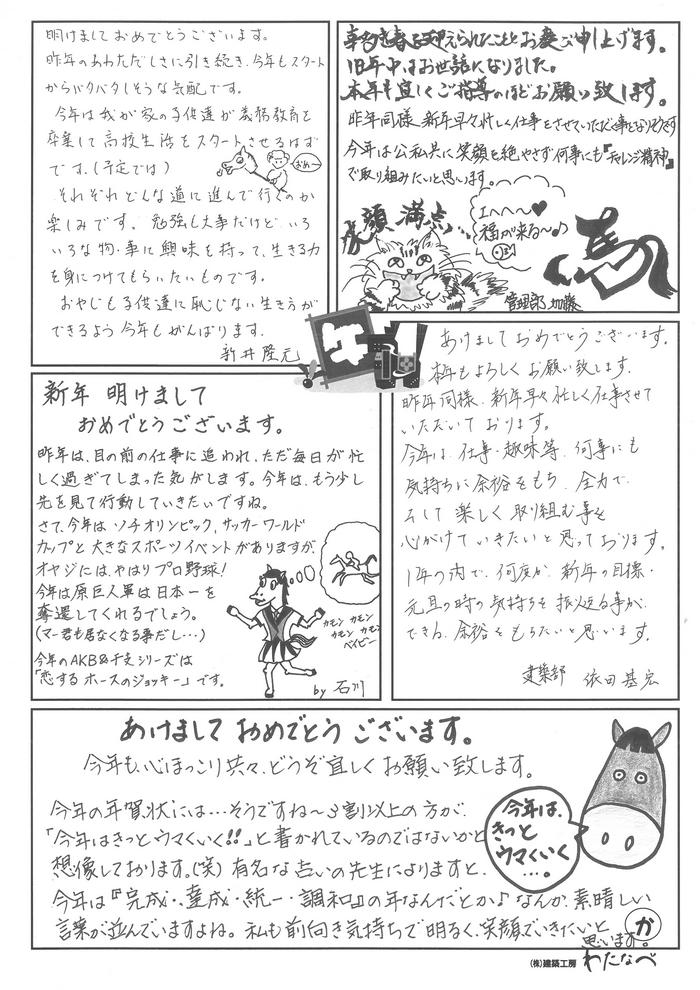 明けましておめでとうございます。
昨年のあわただしさに引き続き、今年もスタート
からバタバタしそうな気配です。
今年は我が家の子供達が義務教育を
卒業して高校生活をスタートさせるはず
です。(予定では)
それぞれどんな道に進んで行くのか
楽しみです。勉強も大事だけど、いろ
いろな物・事に興味を持って、生きる力
を身につけてもらいたいものです。
おやじも子供達に恥じない生き方が
できるよう今年もがんばります。
新井隆元
喜多き春を迎えられたこととお慶び申し上げます。
旧年中はお世話になりました。
本年も宜しくご指導のほどお願い致します。
昨年同様、新年早々忙しく仕事をさせていただく事となりそうです
今年は公私共に笑顔を絶やさず何事にも『チャレンジ精神』
で取り組みたいと思います。
笑顔満点…
エへへ〜♥
福が来る〜♪
馬
管理部 加藤
新年 明けまして
おめでとうございます。
昨年は、目の前の仕事に追われ、ただ毎日が忙
しく過ぎてしまった気がします。今年は、もう少し
先を見て行動していきたいですね。
さて、今年は ソチオリンピック、サッカーワールド
カップと大きなスポーツイベントがありますが、
オヤジには、やはりプロ野球!
今年は原巨人軍は日本一を
奪還してくれるでしょう。
(マー君も居なくなる事だし…)
今年のAKB&干支シリーズは
「恋するホースのジョッキー」です。
カモン カモン
カモン カモン
ベイビー
by 石川
あけましておめでとうございます。
本年もよろしくお願い致します。
昨年同様、新年早々忙しく仕事させて
いただいております。
今年は、仕事・趣味等、何事にも
気持ちに余裕をもち、全力で、
そして楽しく取り組む事を
心がけていきたいと思っております。
1年の内で、何度か、新年の目標・
元旦の時の気持ちを振返る事が
できる、余裕をもちたいと思います。
建築部 依田基宏
あけましておめでとうございます。
今年も、心ほっこり共々、どうぞ宜しくお願い致します。
今年の年賀状には…そうですね〜3割以上の方が、
「今年はきっとウマくいく!!」と書かれているのではないかと
想像しております。(笑) 有名な占いの先生によりますと、
今年は『完成・達成・統一・調和』の年なんだとか♪なんか、素晴しい
言葉が並んでいますよね。私も前向き気持ちで明るく、笑顔でいきたいと
思います。
今年は、
きっと
ウマくいく
…。
か
(株)建築工房 わたなべ